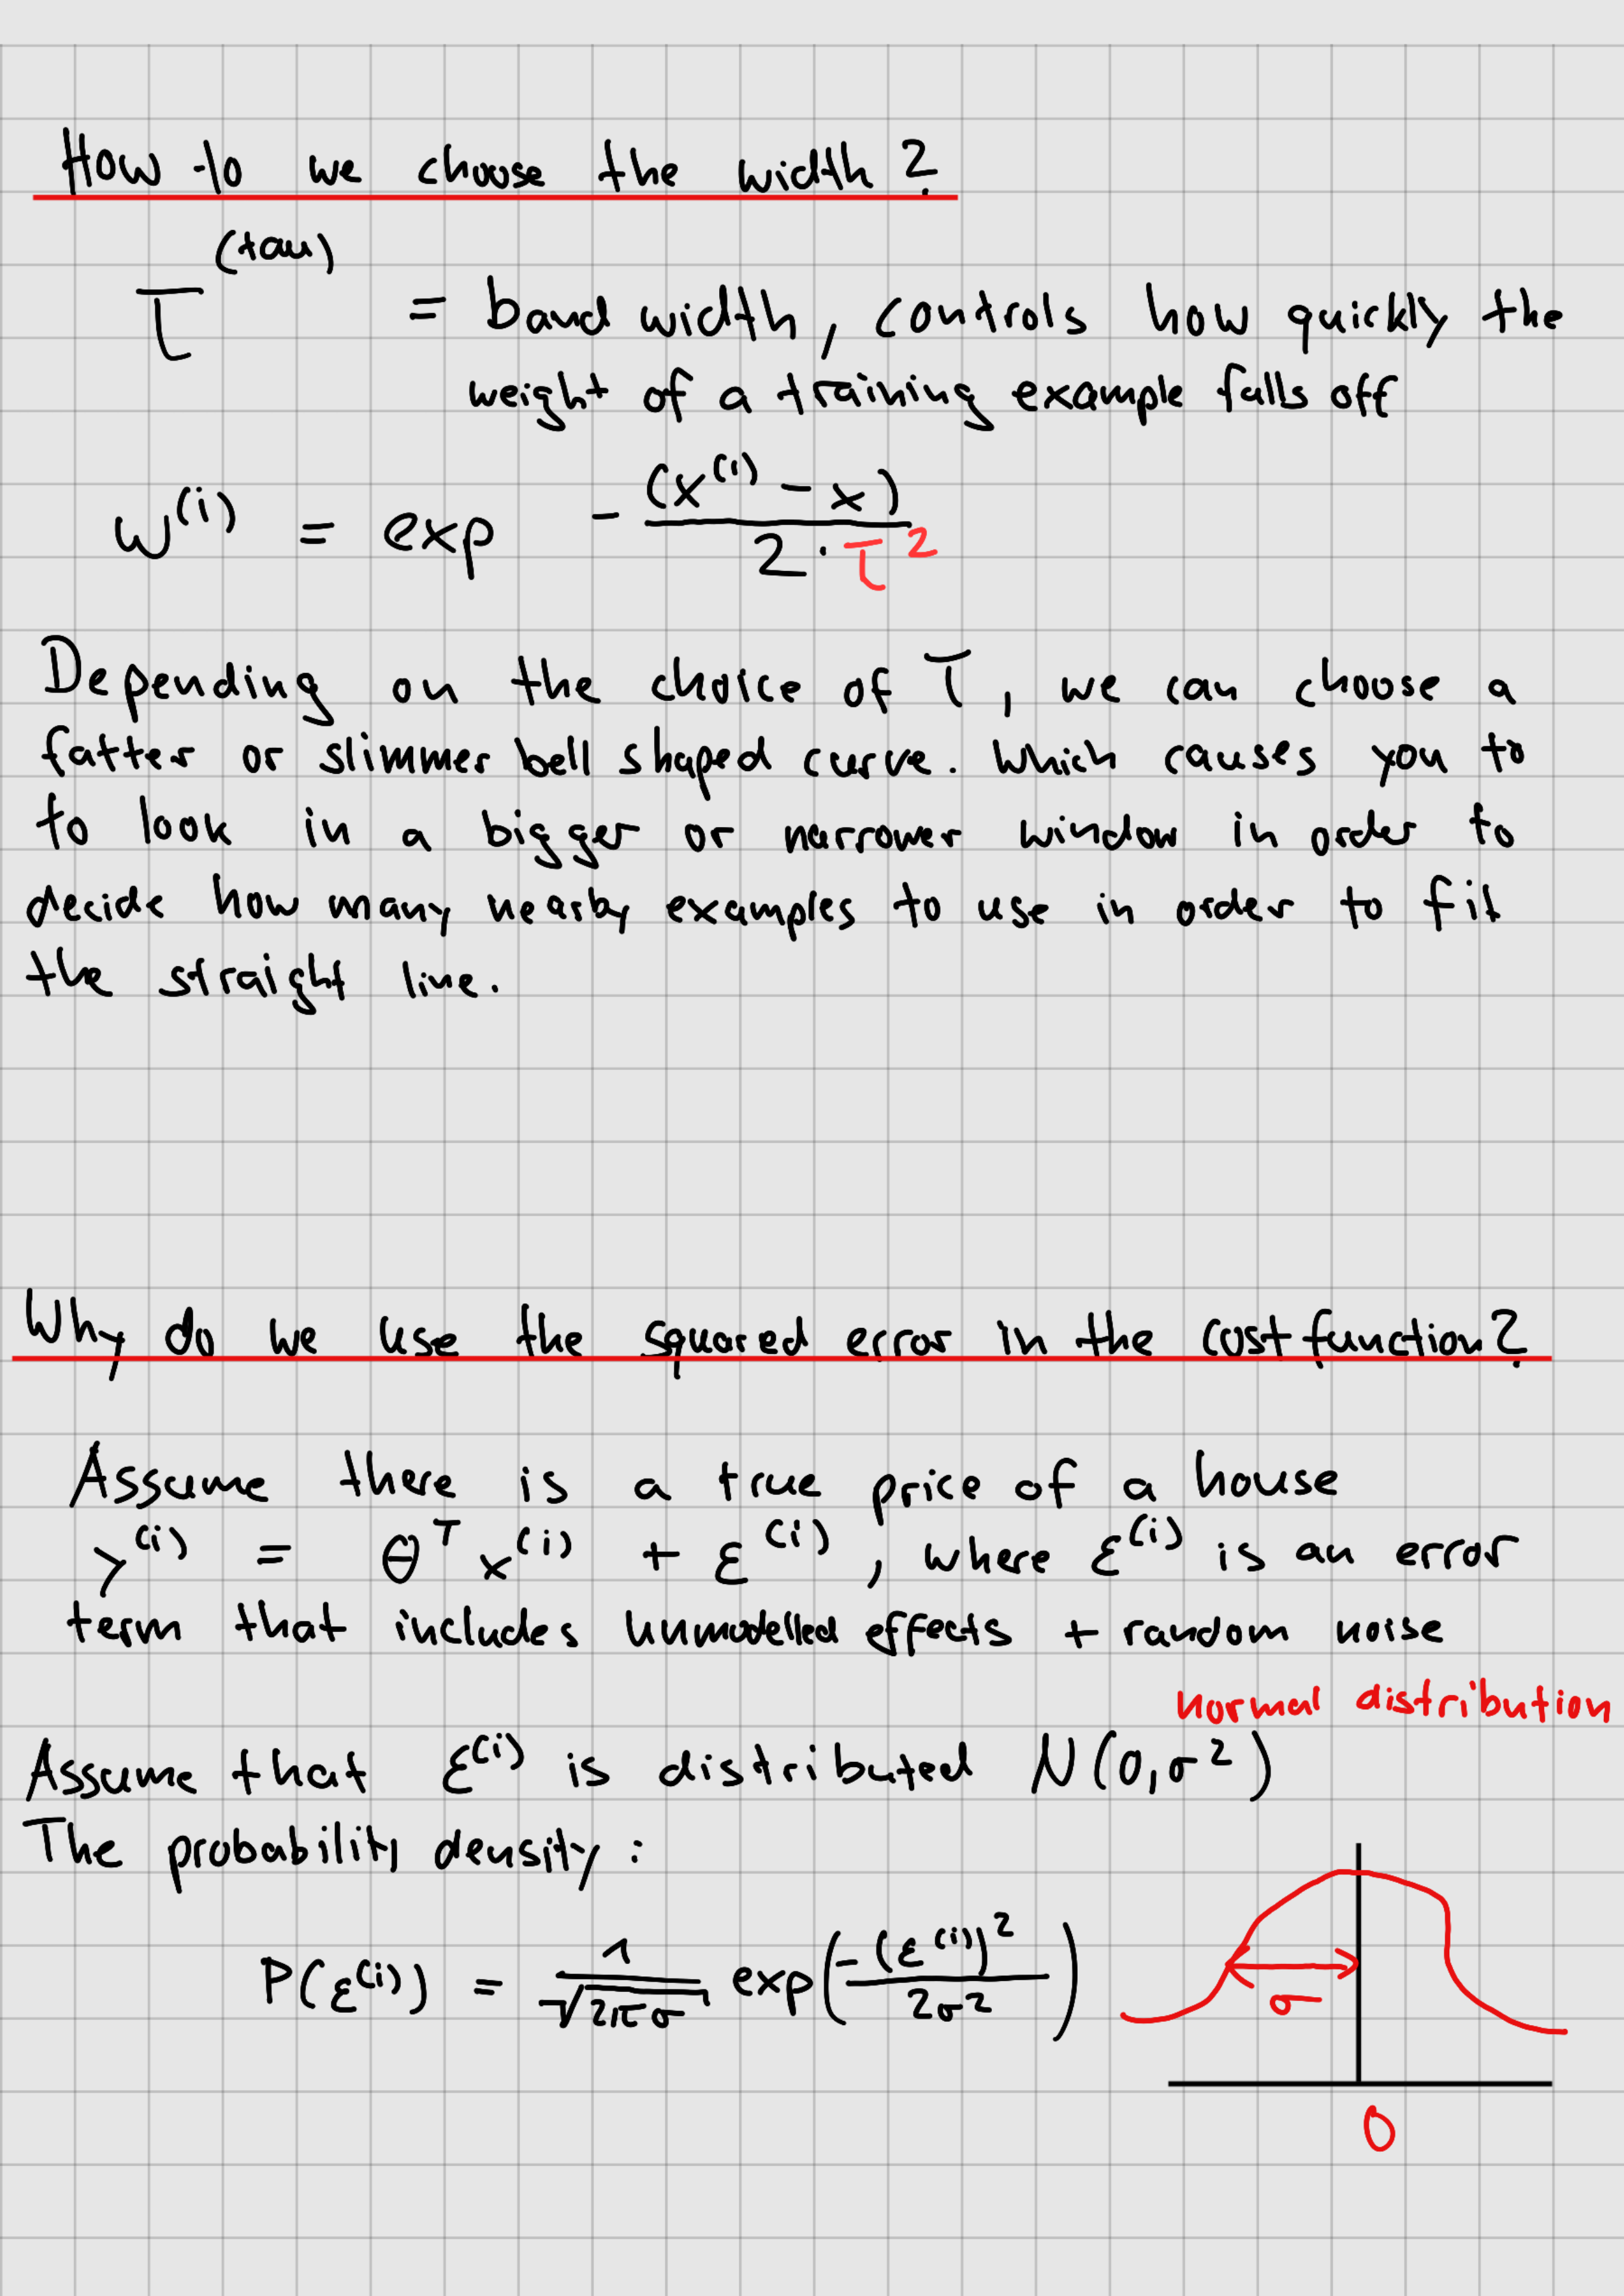 How to we choose the width?
τ (tau) = band width, controls how quickly the
weight of a training example falls off
w^(i) = exp - (x^(i) - x) / 2·τ^2
Depending on the choice of τ, we can choose a
fatter or slimmer bell shaped curve. Which causes you to
to look in a bigger or narrower window in order to
decide how many nearby examples to use in order to fit
the straight line.
Why do we use the squared error in the cost function?
Assume there is a true price of a house
y^(i) = θ^T x^(i) + ε^(i), where ε^(i) is an error
term that includes unmodelled effects + random noise
normal distribution
Assume that ε^(i) is distributed N(0,σ^2)
The probability density:
P(ε^(i)) = 1/√(2πσ) exp(-(ε^(i))^2 / 2σ^2)
σ
0